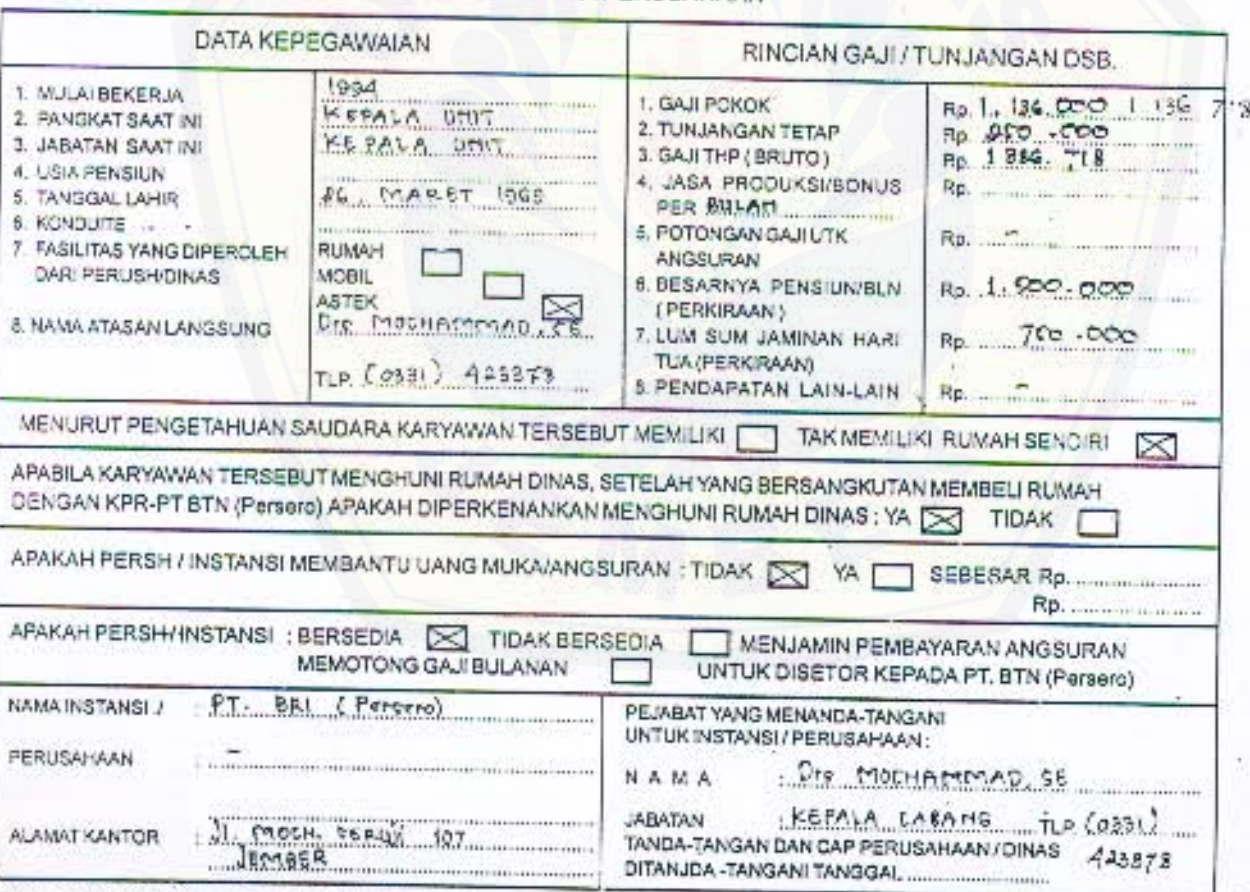 DATA KEPEGAWAIAN
1. MULAI BEKERJA 1994
2. PANGKAT SAAT INI KEPALA UNIT
3. JABATAN SAAT INI KEPALA UNIT
4. USIA PENSIUN
5. TANGGAL LAHIR 26. MARET 1968
6. KONDUITE
7. FASILITAS YANG DIPEROLEH RUMAH
DARI PERUSH/DINAS MOBIL
ASTEK
8. NAMA ATASAN LANGSUNG Drs MOCHAMMAD, SE
TLP. (0331) 423873
RINCIAN GAJI / TUNJANGAN DSB.
1. GAJI POKOK Rp. 1.136.000 1.136 718
2. TUNJANGAN TETAP Rp. 250.000
3. GAJI THP ( BRUTO ) Rp. 1386.718
4. JASA PRODUKSI/BONUS Rp.
PER BULAN
5. POTONGAN GAJI UTK Rp. -
ANGSURAN
6. BESARNYA PENSIUN/BLN Rp. 1.500.000
( PERKIRAAN )
7. LUM SUM JAMINAN HARI Rp. 750.000
TUA (PERKIRAAN)
8. PENDAPATAN LAIN-LAIN Rp. -
MENURUT PENGETAHUAN SAUDARA KARYAWAN TERSEBUT MEMILIKI TAK MEMILIKI RUMAH SENDIRI
APABILA KARYAWAN TERSEBUT MENGHUNI RUMAH DINAS, SETELAH YANG BERSANGKUTAN MEMBELI RUMAH
DENGAN KPR-PT BTN (Persero) APAKAH DIPERKENANKAN MENGHUNI RUMAH DINAS : YA TIDAK
APAKAH PERSH / INSTANSI MEMBANTU UANG MUKA/ANGSURAN : TIDAK YA SEBESAR Rp.
Rp.
APAKAH PERSH/INSTANSI : BERSEDIA TIDAK BERSEDIA MENJAMIN PEMBAYARAN ANGSURAN
MEMOTONG GAJI BULANAN UNTUK DISETOR KEPADA PT. BTN (Persero)
NAMA INSTANSI / : PT. BRI (Persero)
PERUSAHAAN : -
ALAMAT KANTOR : Jl. MOCH. 107
JEMBER
PEJABAT YANG MENANDA-TANGANI
UNTUK INSTANSI / PERUSAHAAN :
N A M A : Drs MOCHAMMAD, SE
JABATAN : KEPALA CABANG TLP (0331)
TANDA-TANGAN DAN CAP PERUSAHAAN / DINAS 423873
DITANDA-TANGANI TANGGAL